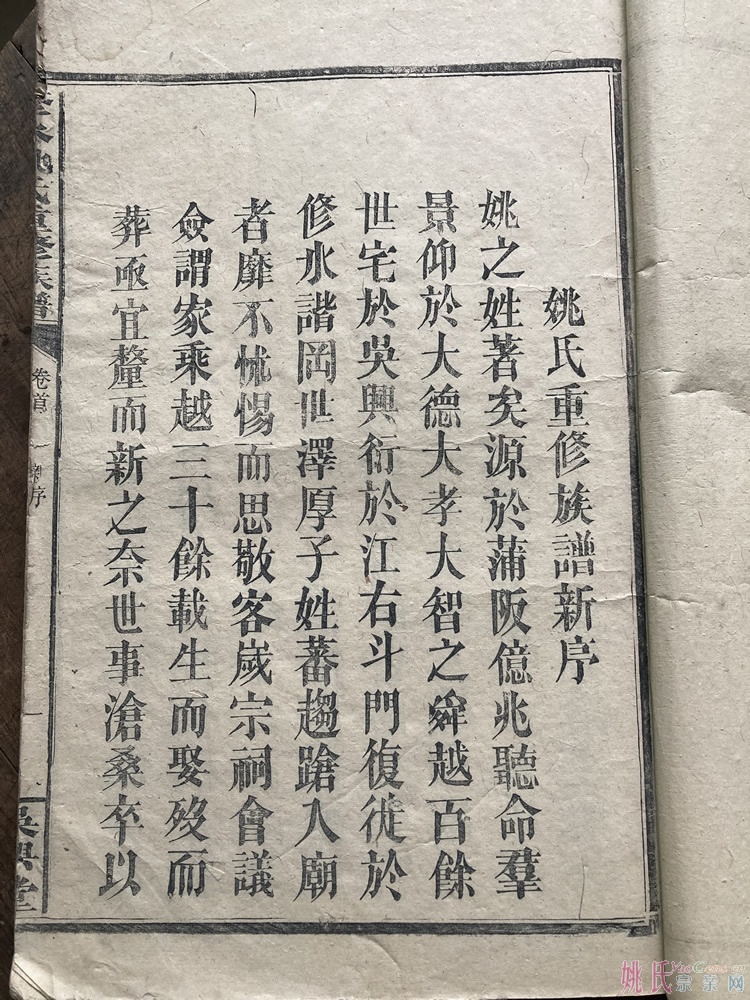 姚氏重修族譜新序
姚之姓著矣源於蒲阪億兆聽命羣
景仰於大德大孝大智之舜越百餘
世宅於吳興衍於江右斗門復徙於
修水諧岡世澤厚子姓蕃趨蹌入廟
者靡不怵惕而思敬客歲宗祠會議
僉謂家乘越三十餘載生而娶歿而
葬亟宜釐而新之奈世事滄桑卒以
姚氏重修族譜
卷首
新序
一
吳興堂
姚氏宗亲网
YaoGens.cn